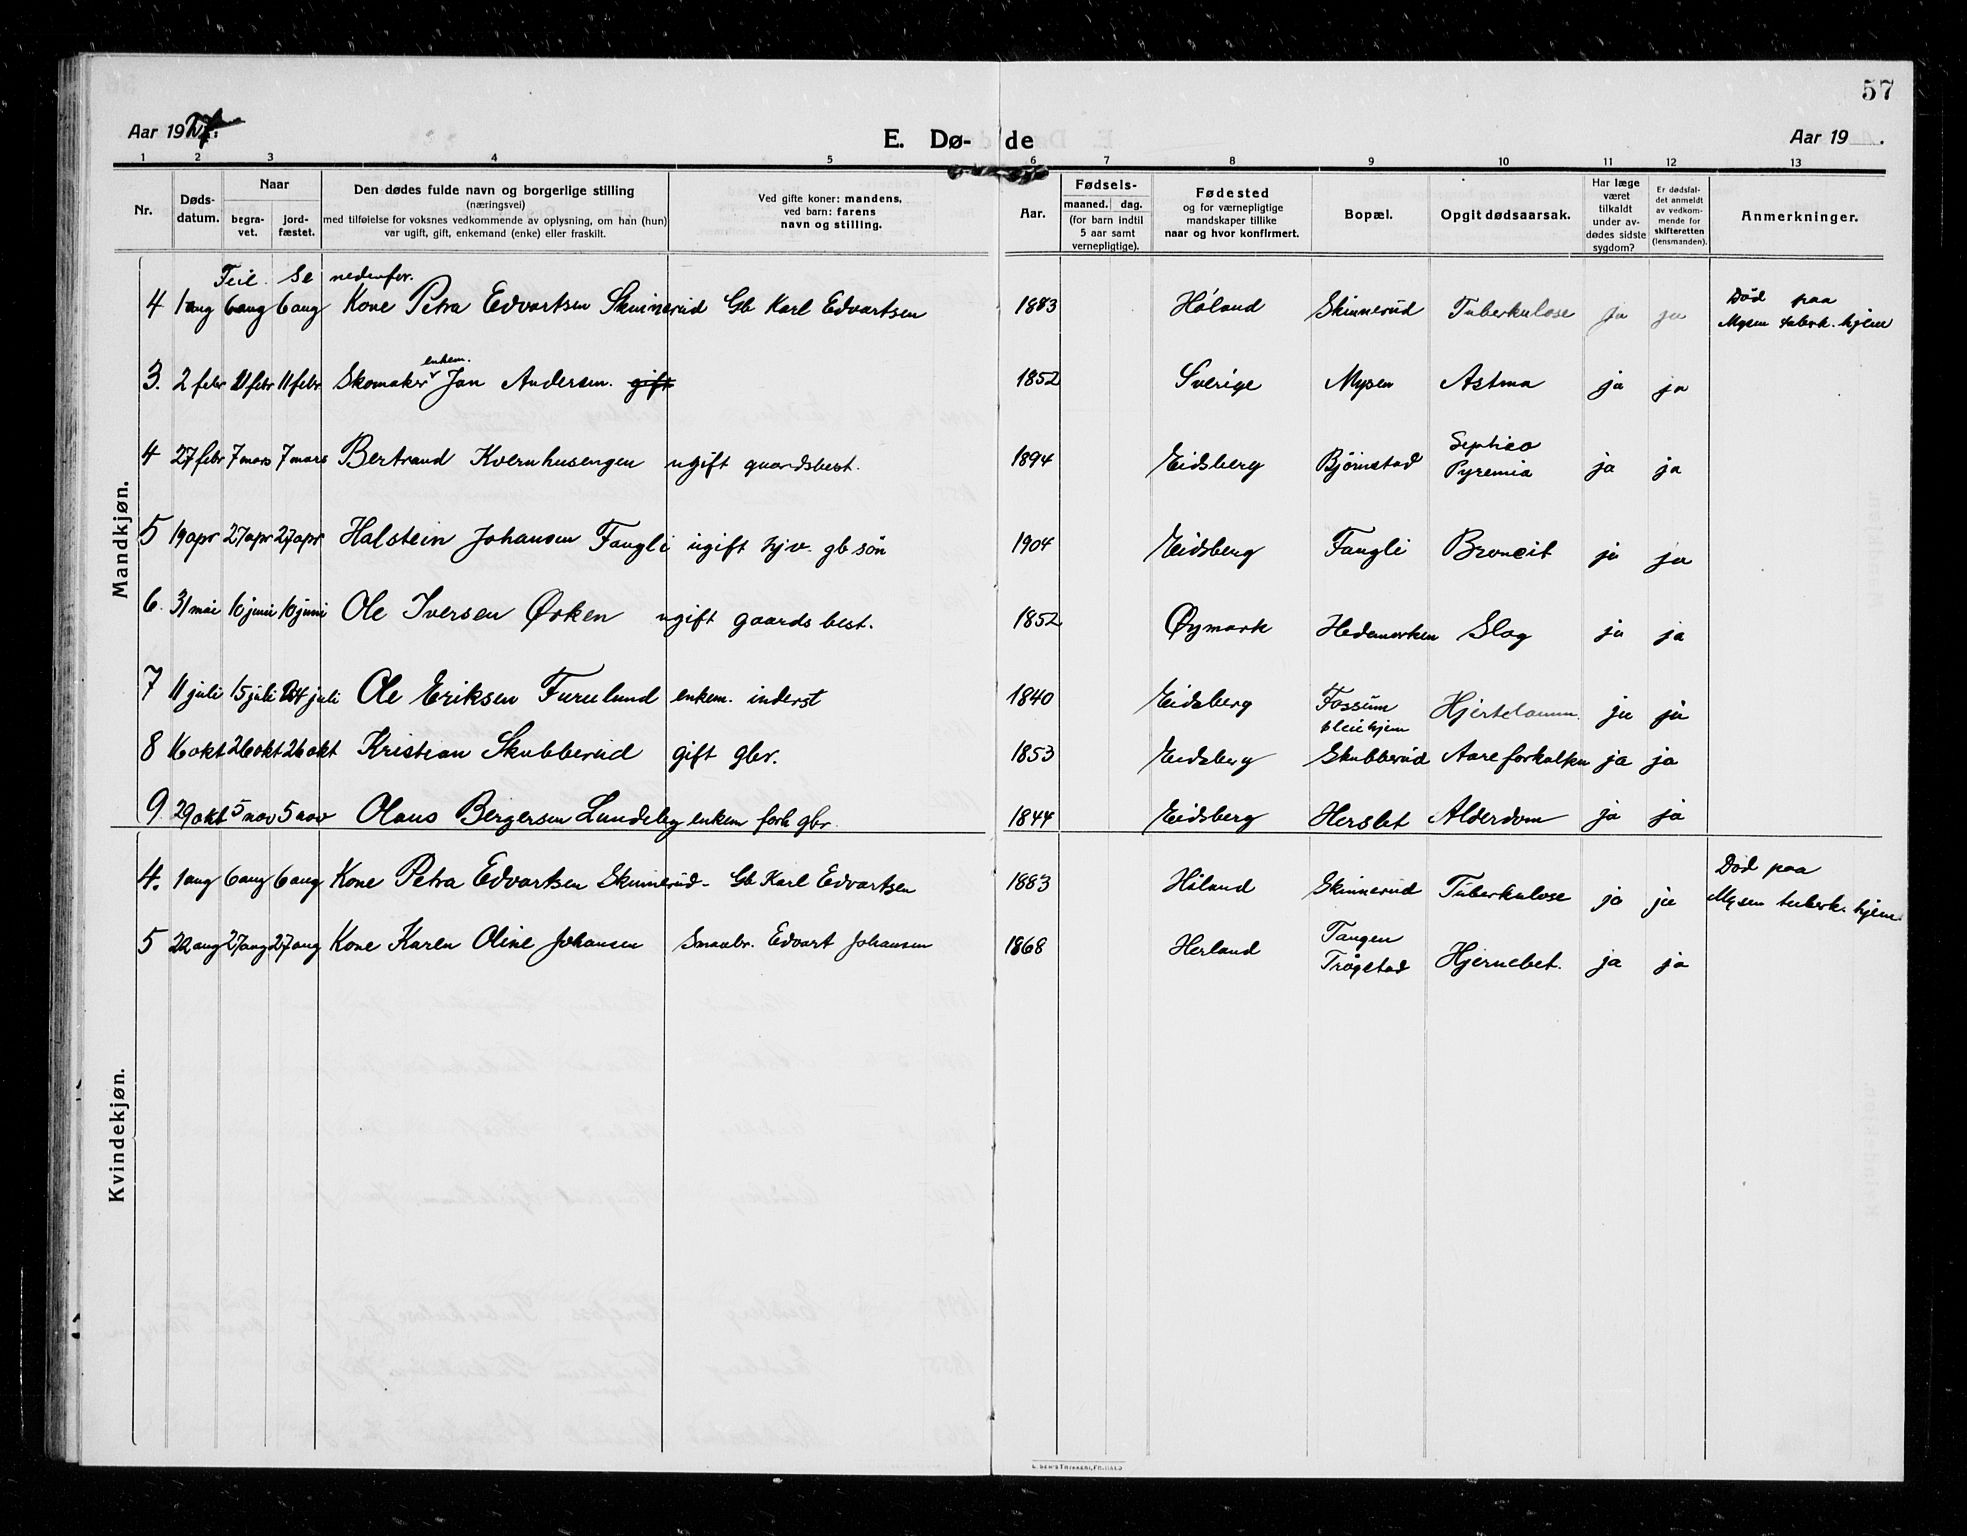 57
Aar 19 E. Dø- de Aar 19
1 2 3 4 5 6 7 8 9 10 11 12 13
Nr.
Døds-
datum.
Naar
begra-
vet.
jord-
fæstet.
Den dødes fulde navn og borgerlige stilling
(næringsvei)
med tilføielse for voksnes vedkommende av oplysning, om han (hun)
var ugift, gift, enkemand (enke) eller fraskilt.
Ved gifte koner: mandens,
ved barn: farens
navn og stilling.
Aar.
Fødsels-
maaned. dag.
(for barn indtil
5 aar samt
vernepligtige).
Fødested
og for værnepligtige
mandskaper tillike
naar og hvor konfirmert.
Bopæl.
Opgit dødsaarsak.
Har læge
været
tilkaldt
under av-
dødes sidste
sygdom?
Er dødsfal-
det anmeldt
av vedkom-
mende for
skifteretten
(lensmanden).
Anmerkninger.
Mandkjøn.
Feil. Se nedenfor.
4 1 aug 6 aug 6 aug Kone Petra Edvartsen Skinnerud Gb Karl Edvartsen 1883 Høland Skinnerud Tuberkulose ja ja Død paa
Mysen tuberk. hjem
enkem.
3. 2 febr 11 febr 11 febr Skomaker Jan Andersen. gift 1852 Sverige Mysen Astma ja ja
4 27 febr 7 mars 7 mars Bertrand Kvernhusengen ugift gaardsbest. 1894 Eidsberg Bjørnstad Septico
Pyremia ja ja
5 19 apr 27 apr 27 apr Halstein Johansen Fangli ugift hjv. gb søn 1904 Eidsberg Fangli Broncit ja ja
6. 31 mai 10 juni 10 juni Ole Iversen Ørken ugift gaardsbest. 1852 Øymark Hedemarken Slag ja ja
7 11 juli 15 juli 24 juli Ole Eriksen Furulund enkem. inderst 1840 Eidsberg Fossum
pleiehjem Hjertelamm. ja ja
8 16 okt 26 okt 26 okt Kristian Skubberud gift gbr. 1853 Eidsberg Skubberud Aareforkalkn ja ja
9. 29 okt 5 nov 5 nov Olaus Bergersen Lundeby enkem forh gbr. 1844 Eidsberg Herslet Alderdom ja ja
Kvindekjøn.
4. 1 aug 6 aug 6 aug Kone Petra Edvartsen Skinnerud- Gb Karl Edvartsen 1883 Høland Skinnerud Tuberkulose ja ja Død paa
Mysen tuberk. hjem
5 22 aug 27 aug 27 aug Kone Karen Oline Johansen Smaabr. Edvart Johansen 1868 Herland Tangen
Trøgstad Hjernebet. ja ja